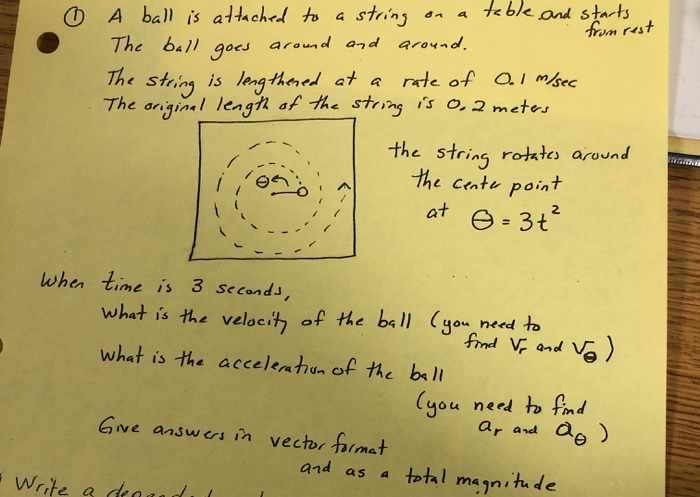 ① A ball is attached to a string on a table and starts
from rest
The ball goes around and around.
The string is lengthened at a rate of 0.1 m/sec
The original length of the string is 0.2 meters
the string rotates around
the center point
at θ = 3t²
θ
When time is 3 seconds,
What is the velocity of the ball (you need to
find Vr and Vθ)
What is the acceleration of the ball
(you need to find
ar and aθ)
Give answers in vector format
and as a total magnitude
Write a